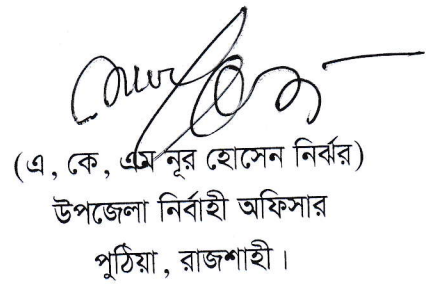 (এ, কে, এম নূর হোসেন নির্ঝর)
উপজেলা নির্বাহী অফিসার
পুঠিয়া, রাজশাহী।